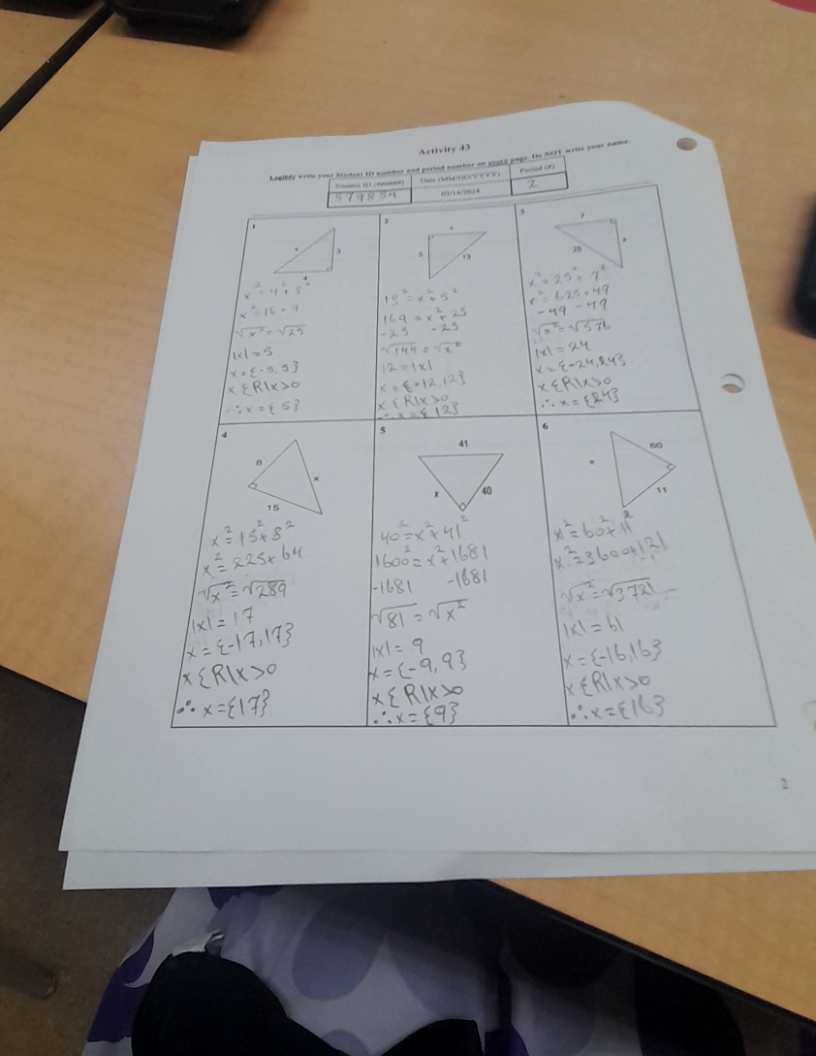 Activity 43
Legibly write your Student ID number and period number on every page. Do NOT write your name.
Student ID (######) Date (MM/DD/YYYY) Period (#)
579854 03/14/2024 2
1
x
3
4
x² = 4² + 3²
x² = 16 + 9
√x² = √25
|x| = 5
x = {-5, 5}
x {R|x>0
∴ x = {5}
2
x
5
13
13² = x² + 5²
169 = x² + 25
-25 -25
√144 = √x²
12 = |x|
x = {-12, 12}
x {R|x>0
∴ x = {12}
3
7
25
x
x² = 25² = 7²
x² = 625 + 49
-49 -49
√x² = √576
|x| = 24
x = {-24, 24}
x {R|x>0
∴ x = {24}
4
8
x
15
x² = 15² + 8²
x² = 225 + 64
√x² = √289
|x| = 17
x = {-17, 17}
x {R|x>0
∴ x = {17}
5
41
x
40
40² = x² + 41²
1600² = x² + 1681
-1681 -1681
√81 = √x²
|x| = 9
x = {-9, 9}
x {R|x>0
∴ x = {9}
6
60
x
11
x² = 60² + 11²
x² = 3600 + 121
√x² = √3721
|x| = 61
x = {-16, 16}
x {R|x>0
∴ x = {16}
2